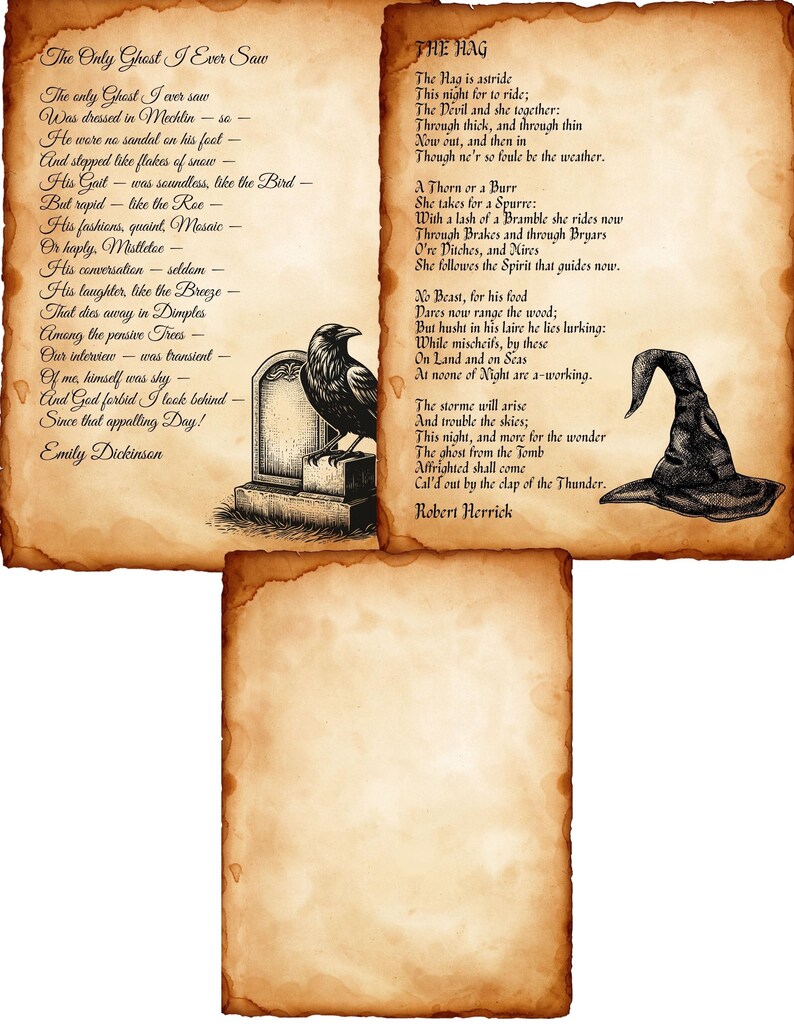 The Only Ghost I Ever Saw
The only Ghost I ever saw
Was dressed in Mechlin — so —
He wore no sandal on his foot —
And stepped like flakes of snow —
His Gait — was soundless, like the Bird —
But rapid — like the Roe —
His fashions, quaint, Mosaic —
Or haply, Mistletoe —
His conversation — seldom —
His laughter, like the Breeze —
That dies away in Dimples
Among the pensive Trees —
Our interview — was transient —
Of me, himself was shy —
And God forbid I look behind —
Since that appalling Day!
Emily Dickinson
THE HAG
The Hag is astride
This night for to ride;
The Devil and she together:
Through thick, and through thin
Now out, and then in
Though ne'r so foule be the weather.
A Thorn or a Burr
She takes for a Spurre:
With a lash of a Bramble she rides now
Through Brakes and through Bryars
O're Ditches, and Mires
She followes the Spirit that guides now.
No Beast, for his food
Dares now range the wood;
But husht in his laire he lies lurking:
While mischeifs, by these
On Land and on Seas
At noone of Night are a-working.
The storme will arise
And trouble the skies;
This night, and more for the wonder
The ghost from the Tomb
Affrighted shall come
Cal'd out by the clap of the Thunder.
Robert Herrick